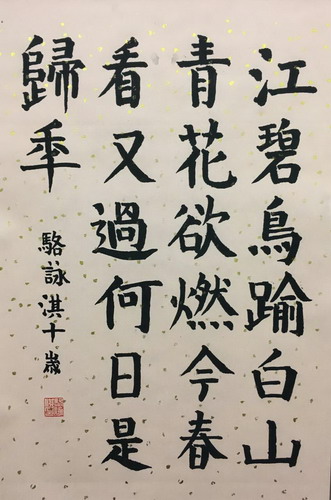 江碧鳥踰白山
青花欲燃今春
看又過何日是
歸年
駱詠淇十歲